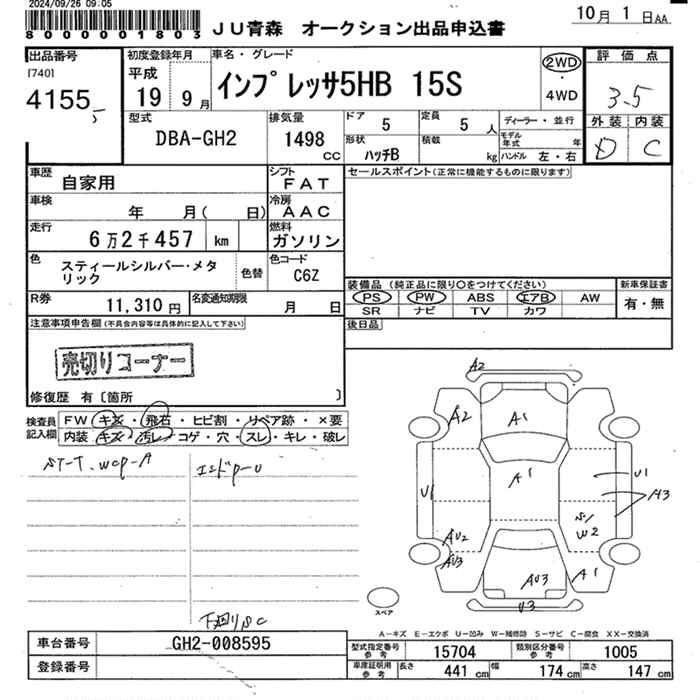 2024/09/26 09:05
80000001803
JU青森 オークション出品申込書
10月 1日AA
出品番号
[740]
4155
5
初度登録年月
平成
19 9月
車名・グレード
インプレッサ5HB 15S
2WD
・
4WD
評価点
3.5
外装 内装
D C
型式
DBA-GH2
排気量
1498
CC
ドア
5
定員
5人
形状
ハッチB
積載
kg
ディーラー・並行
モデル
年式 年
ハンドル 左・右
車歴
自家用
シフト
FAT
セールスポイント(正常に機能するものに限ります)
車検
年 月( 日)
冷房
AAC
走行
6万2千457 km
燃料
ガソリン
色
スティールシルバー・メタ
リック
色替
色コード
C6Z
装備品(純正品に限り○をつけてください)
PS PW ABS エアB AW
SR ナビ TV カワ
新車保証書
有・無
R券
11,310円
名変通知期限
月 日
後日品
注意事項申告欄(不具合内容等は具体的に記入して下さい)
売切りコーナー
修復歴 有〔箇所 〕
検査員
記入欄
FW キズ・飛石・ヒビ割・リペア跡・×要
内装 キズ・汚レ・コゲ・穴・スレ・キレ・破レ
ST-T.wcp-A
エンドP-U
下廻りSC
A2
A2
A1
A1
U1
U1
A3
S1
W2
AU2
AU3
A1
AU3
U3
スペア
A-キズ E-エクボ U-凹み W-補修跡 S-サビ C-腐食 XX-交換済
車台番号
GH2-008595
登録番号
型式指定番号
参考
15704
類別区分番号
参考
1005
車庫証明用
参考
長さ 441cm 幅 174cm 高さ 147cm